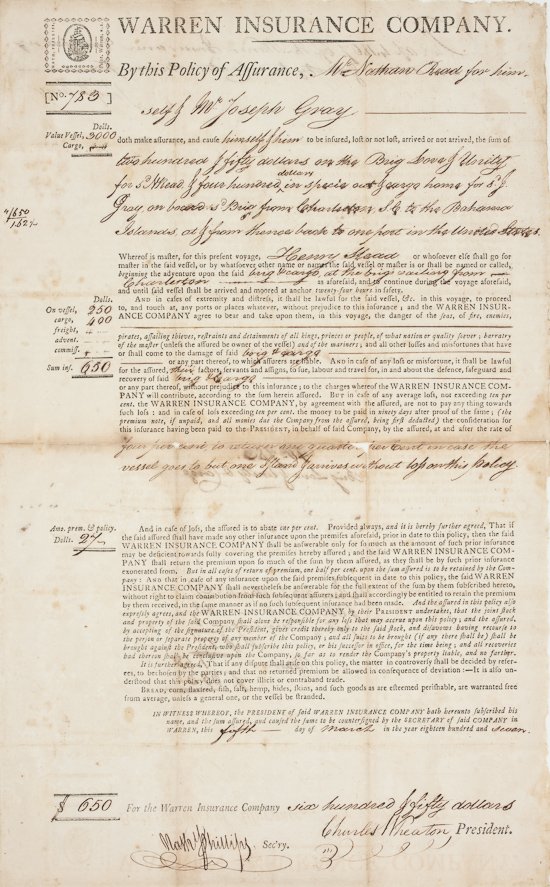 WARREN INSURANCE COMPANY.
By this Policy of Assurance, Mr Nathan Read for him
[No. 783]
self & Mr Joseph Gray
Dolls.
Value Vessel, 3000
Cargo,
doth make assurance, and cause himself & him to be insured, lost or not lost, arrived or not arrived, the sum of
two hundred & fifty dollars on the Brig Love & Unity
for sd Read & four hundred dollars in specie out & cargo home for sd J
Gray, on board sd Brig from Charleston S C to the Bahama
Islands, at & from thence back to one port in the United States.
Whereof is master, for this present voyage, Henry Read or whosoever else shall go for
master in the said vessel, or by whatsoever other name or names the said vessel or master is or shall be named or called,
beginning the adventure upon the said brig & cargo, at the brig's sailing from
Charleston as aforesaid, and to continue during the voyage aforesaid,
and until said vessel shall be arrived and moored at anchor twenty-four hours in safety.
And in cases of extremity and distress, it shall be lawful for the said vessel, &c. in this voyage, to proceed
to, and touch at, any ports or places whatever, without prejudice to this insurance; and the WARREN INSUR-
ANCE COMPANY agree to bear and take upon them, in this voyage, the danger of the seas, of fire, enemies,
Dolls.
On vessel, 250
cargo, 400
freight,
advent.
commiss.
Sum inf. 650
pirates, assailing thieves, restraints and detainments of all kings, princes or people, of what nation or quality soever; barratry
of the master (unless the assured be owner of the vessel) and of the mariners; and all other losses and misfortunes that have
or shall come to the damage of said brig & cargo
or any part thereof, to which assurers are liable. And in case of any loss or misfortune, it shall be lawful
for the assured, their factors, servants and assigns, to sue, labour and travel for, in and about the defence, safeguard and
recovery of said brig & cargo
or any part thereof, without prejudice to this insurance; to the charges whereof the WARREN INSURANCE COM-
PANY will contribute, according to the sum herein assured. But in case of any average loss, not exceeding ten per
cent. the WARREN INSURANCE COMPANY, by agreement with the assured, are not to pay any thing towards
such loss: and in case of loss exceeding ten per cent. the money to be paid in ninety days after proof of the same; (the
premium note, if unpaid, and all monies due the Company from the assured, being first deducted) the consideration for
this insurance having been paid to the PRESIDENT, in behalf of said Company, by the assured, at and after the rate of
four per cent, to return one quarter per cent in case the
vessel goes to but one Island & arrives without loss on this policy.
Amo. prem. & policy.
Dolls. 27
And in case of loss, the assured is to abate one per cent. Provided always, and it is hereby further agreed, That if
the said assured shall have made any other insurance upon the premises aforesaid, prior in date to this policy, then the said
WARREN INSURANCE COMPANY shall be answerable only for so much as the amount of such prior insurance
may be deficient towards fully covering the premises hereby assured; and the said WARREN INSURANCE COM-
PANY shall return the premium upon so much of the sum by them assured, as they shall be by such prior insurance
exonerated from. But in all cases of return of premium, one half per cent. upon the sum assured is to be retained by the Com-
pany: And that in case of any insurance upon the said premises subsequent in date to this policy, the said WARREN
INSURANCE COMPANY shall nevertheless be answerable for the full extent of the sum by them subscribed hereto,
without right to claim contribution from such subsequent assurers; and shall accordingly be entitled to retain the premium
by them received, in the same manner as if no such subsequent insurance had been made. And the assured in this policy also
expressly agrees, and the WARREN INSURANCE COMPANY by their PRESIDENT undertakes, that the joint stock
and property of the said Company shall alone be responsible for any loss that may accrue upon this policy; and the assured,
by accepting of the signature of the President, gives credit thereby only to the said stock, and disavows having recourse to
the person or separate property of any member of the Company; and all suits to be brought (if any there shall be) shall be
brought against the President, who shall subscribe this policy, or his successor in office, for the time being; and all recoveries
had thereon shall be conclusive upon the Company, so far as to render the Company's property liable, and no further.
It is further agreed, That if any dispute shall arise on this policy, the matter in controversy shall be decided by refer-
rees, to be chosen by the parties; and that no returned premium be allowed in consequence of deviation:—It is also un-
derstood that this policy does not cover illicit or contraband trade.
Bread, corn, flaxseed, fish, salt, hemp, hides, skins, and such goods as are esteemed perishable, are warranted free
from average, unless a general one, or the vessel be stranded.
IN WITNESS WHEREOF, the PRESIDENT of said WARREN INSURANCE COMPANY hath hereunto subscribed his
name, and the sum assured, and caused the same to be countersigned by the SECRETARY of said COMPANY in
WARREN, this fifth day of March in the year eighteen hundred and seven.
$ 650 For the Warren Insurance Company six hundred & fifty dollars
Charles Wheaton President.
Nathl Phillips Secry.